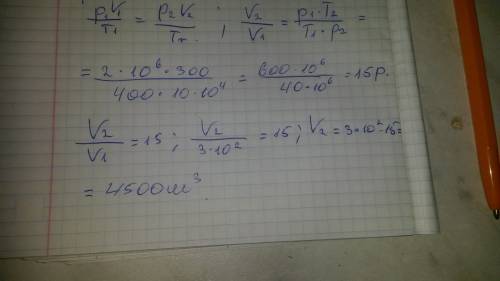 p₁V₁/T₁ = p₂V₂/T₂ ; V₂/V₁ = p₁·T₂/T₁·p₂ =
= 2·10⁶·300/400·10·10⁴ = 600·10⁶/40·10⁶ = 15р.
V₂/V₁ = 15 ; V₂/3·10² = 15 ; V₂ = 3·10²·15=
= 4500м³